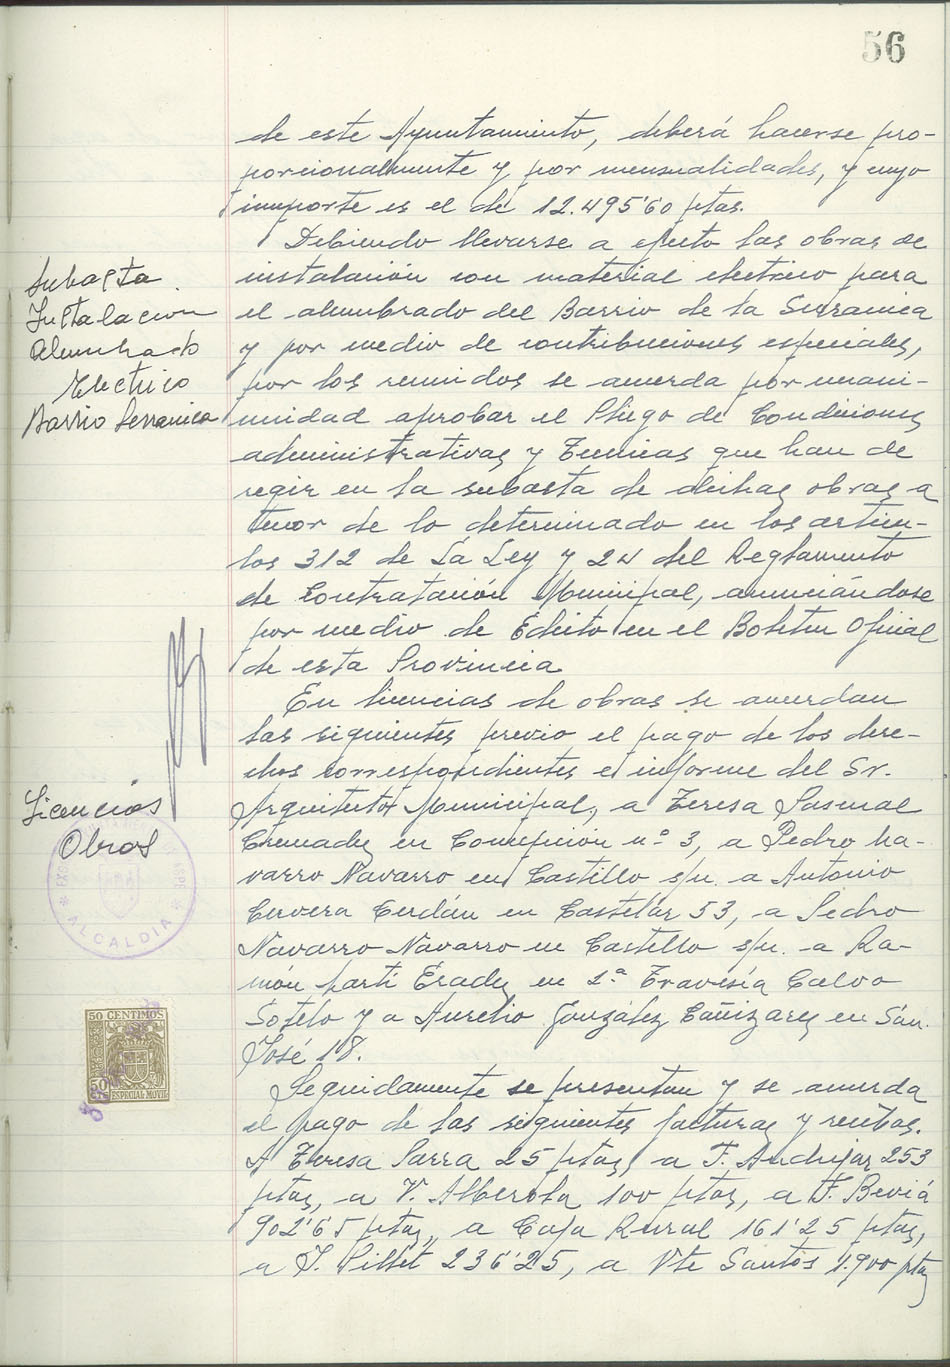 56
de este Ayuntamiento, deberá hacerse pro-
porcionalmente y por mensualidades, y cuyo
importe es el de 12.495'60 ptas.
Debiendo llevarse a efecto las obras de
instalación con material electrico para
el alumbrado del Barrio de la Serranica
y por medio de contribuciones especiales,
por los reunidos se acuerda por unani-
midad aprobar el Pliego de Condiciones
administrativas y Tecnicas que han de
regir en la subasta de dichas obras a
tenor de lo determinado en los articu-
los 312 de La Ley y 24 del Reglamento
de Contratación Municipal, anunciándose
por medio de Edicto en el Boletin Oficial
de esta Provincia.
Subasta
Instalacion
Alumbrado
Electrico
Barrio Serranica
En licencias de obras se acuerdan
las siguientes previo el pago de los dere-
chos correspondientes e informe del Sr.
Arquitecto Municipal, a Teresa Pascual
Cremades en Concepción nº 3, a Pedro Na-
varro Navarro en Castillo s/n. a Antonio
Cervera Cerdán en Castelar 53, a Pedro
Navarro Navarro en Castillo s/n. a Ra-
món en 2ª Travesía Calvo
Sotelo y a Aurelio González Cañizares en San
José 18.
Licencias
Obras
ALCALDIA
50 CENTIMOS
50
ESPECIAL MOVIL
Seguidamente se presentan y se acuerda
el pago de las siguientes facturas y recibos.
A Teresa Parra 25 ptas, a F. Andujar 253
ptas, a V. Alberola 100 ptas, a F. Beviá
902'65 ptas, a Caja Rural 161'25 ptas,
a J. 236'25, a Vte Santos 1.900 ptas